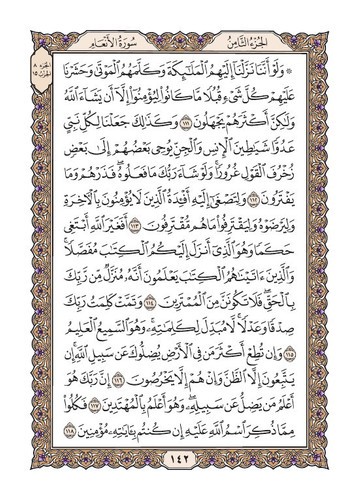 الجزء الثامن
سورة الأنعام
الجزء ٨
الحزب ١٥
۞ وَلَوْ أَنَّنَا نَزَّلْنَا إِلَيْهِمُ ٱلْمَلَٰٓئِكَةَ وَكَلَّمَهُمُ ٱلْمَوْتَىٰ وَحَشَرْنَا
عَلَيْهِمْ كُلَّ شَىْءٍ قُبُلًا مَّا كَانُوا۟ لِيُؤْمِنُوٓا۟ إِلَّآ أَن يَشَآءَ ٱللَّهُ
وَلَٰكِنَّ أَكْثَرَهُمْ يَجْهَلُونَ ١١١ وَكَذَٰلِكَ جَعَلْنَا لِكُلِّ نَبِىٍّ
عَدُوًّا شَيَٰطِينَ ٱلْإِنسِ وَٱلْجِنِّ يُوحِى بَعْضُهُمْ إِلَىٰ بَعْضٍ
زُخْرُفَ ٱلْقَوْلِ غُرُورًا ۚ وَلَوْ شَآءَ رَبُّكَ مَا فَعَلُوهُ ۖ فَذَرْهُمْ وَمَا
يَفْتَرُونَ ١١٢ وَلِتَصْغَىٰٓ إِلَيْهِ أَفْـِٔدَةُ ٱلَّذِينَ لَا يُؤْمِنُونَ بِٱلْـَٔاخِرَةِ
وَلِيَرْضَوْهُ وَلِيَقْتَرِفُوا۟ مَا هُم مُّقْتَرِفُونَ ١١٣ أَفَغَيْرَ ٱللَّهِ أَبْتَغِى
حَكَمًا وَهُوَ ٱلَّذِىٓ أَنزَلَ إِلَيْكُمُ ٱلْكِتَٰبَ مُفَصَّلًا ۚ
وَٱلَّذِينَ ءَاتَيْنَٰهُمُ ٱلْكِتَٰبَ يَعْلَمُونَ أَنَّهُۥ مُنَزَّلٌ مِّن رَّبِّكَ
بِٱلْحَقِّ ۖ فَلَا تَكُونَنَّ مِنَ ٱلْمُمْتَرِينَ ١١٤ وَتَمَّتْ كَلِمَتُ رَبِّكَ
صِدْقًا وَعَدْلًا ۚ لَّا مُبَدِّلَ لِكَلِمَٰتِهِۦ ۚ وَهُوَ ٱلسَّمِيعُ ٱلْعَلِيمُ
١١٥ وَإِن تُطِعْ أَكْثَرَ مَن فِى ٱلْأَرْضِ يُضِلُّوكَ عَن سَبِيلِ ٱللَّهِ ۚ إِن
يَتَّبِعُونَ إِلَّا ٱلظَّنَّ وَإِنْ هُمْ إِلَّا يَخْرُصُونَ ١١٦ إِنَّ رَبَّكَ هُوَ
أَعْلَمُ مَن يَضِلُّ عَن سَبِيلِهِۦ ۖ وَهُوَ أَعْلَمُ بِٱلْمُهْتَدِينَ ١١٧ فَكُلُوا۟
مِمَّا ذُكِرَ ٱسْمُ ٱللَّهِ عَلَيْهِ إِن كُنتُم بِـَٔايَٰتِهِۦ مُؤْمِنِينَ ١١٨
١٤٢